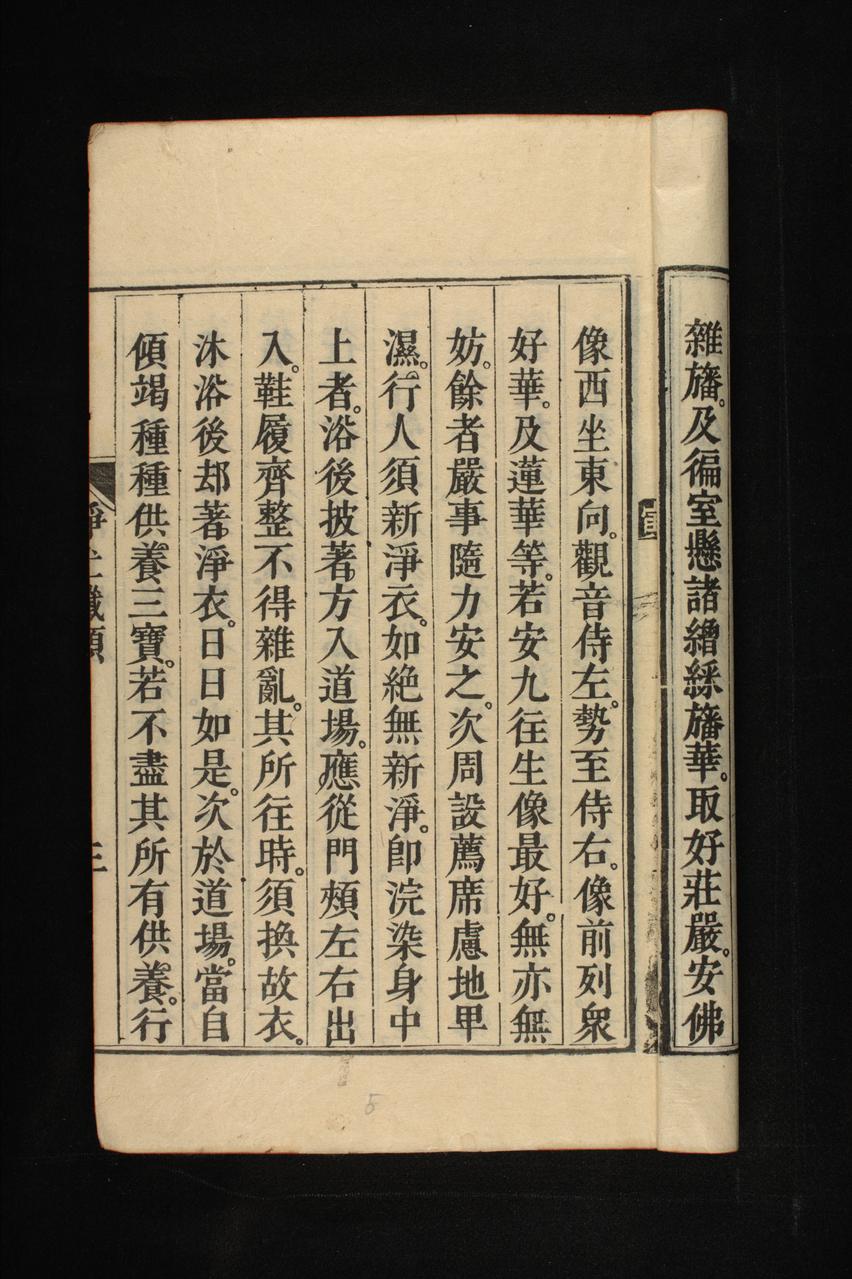 雜旛。及徧室懸諸繒綵旛華。取好莊嚴。安佛
像西坐東向。觀音侍左。勢至侍右。像前列衆
好華。及蓮華等。若安九往生像最好。無亦無
妨。餘者嚴事隨力安之。次周設薦席慮地卑
濕。行人須新淨衣。如絶無新淨。卽浣染身中
上者。浴後披著。方入道場。應從門頰左右出
入。鞋履齊整不得雜亂。其所往時。須換故衣。
沐浴後却著淨衣。日日如是。次於道場。當自
傾竭種種供養三寶。若不盡其所有供養。行
淨土懺願
三
5